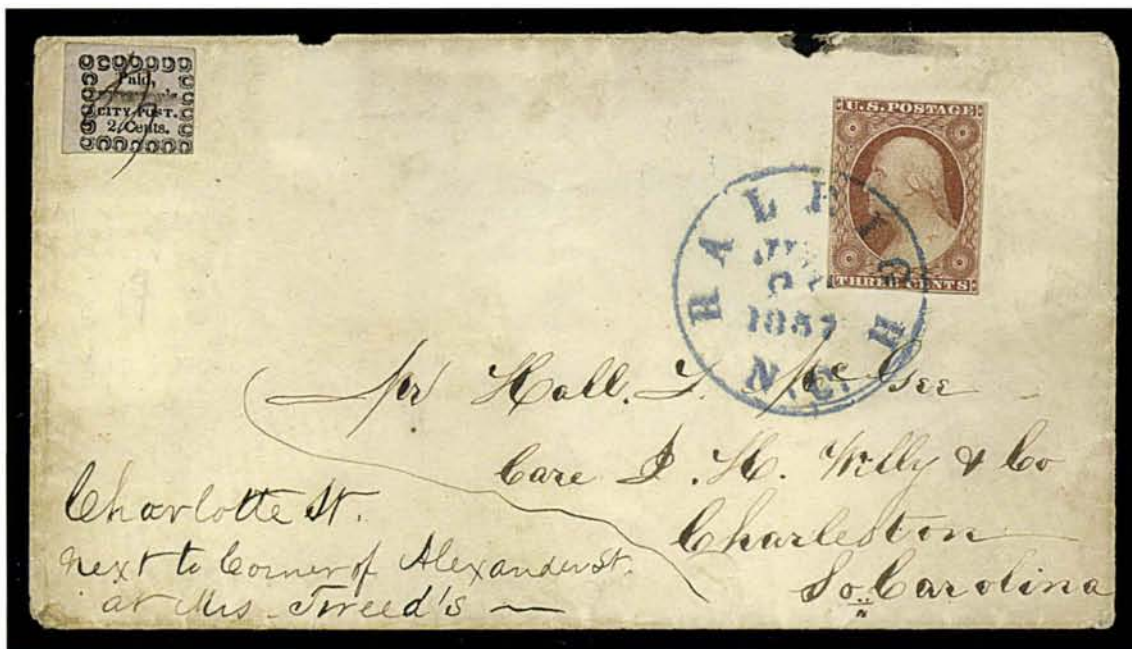 Paid,
CITY POST.
2 Cents.
U.S. POSTAGE
THREE CENTS
RALEIGH
1857
N.C.
Hall. T. McGee
Care J. H. Willy & Co
Charleston
So Carolina
Charlotte St.
next to Corner of Alexander St.
at Mrs. Tweed's